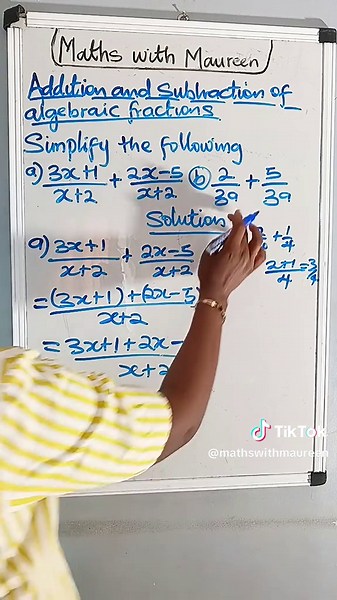 Maths with Maureen
Addition and Subtraction of
algebraic fractions
Simplify the following
a) (3x+1)/(x+2) + (2x-5)/(x+2) (b) 2/3a + 5/3a
Solution
a) (3x+1)/(x+2) + (2x-5)/(x+2)
+ 1/4
(2+1)/4 = 3/4
= ((3x+1)+(2x-5)/(x+2)
= 3x+1+2x-
x+2
TikTok
@mathswithmaureen